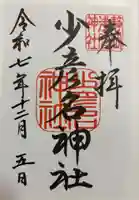 奉拝
少彦名神社
令和七年十二月五日